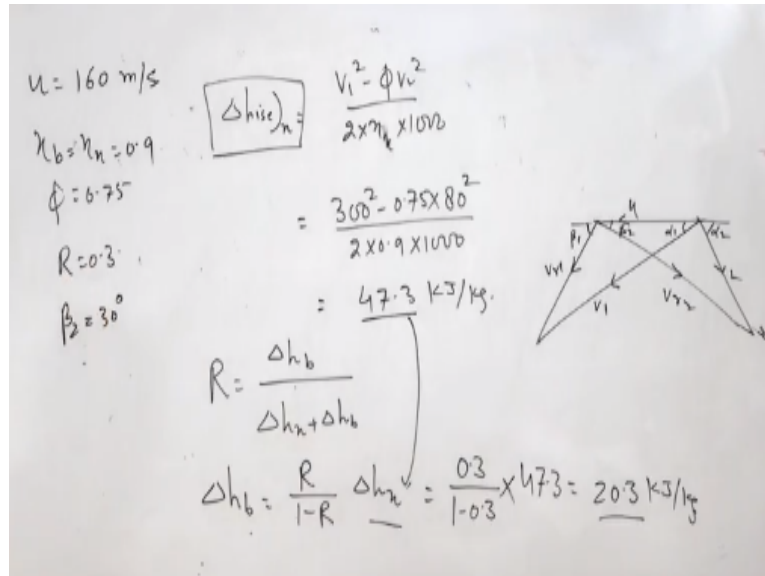 u = 160 m/s
η_b = η_n = 0.9
ϕ = 0.75
R = 0.3
β₂ = 30°
Δhise)_n = (V₁² - ϕV₂²) / (2×η_n×1000)
= (300² - 0.75×80²) / (2×0.9×1000)
= 47.3 KJ/kg.
R = Δh_b / (Δh_n + Δh_b)
Δh_b = R/(1-R) Δh_n = 0.3/(1-0.3) × 47.3 = 20.3 KJ/kg
u
β₁ β₂ α₁ α₂
Vr1 V₁ Vr₂